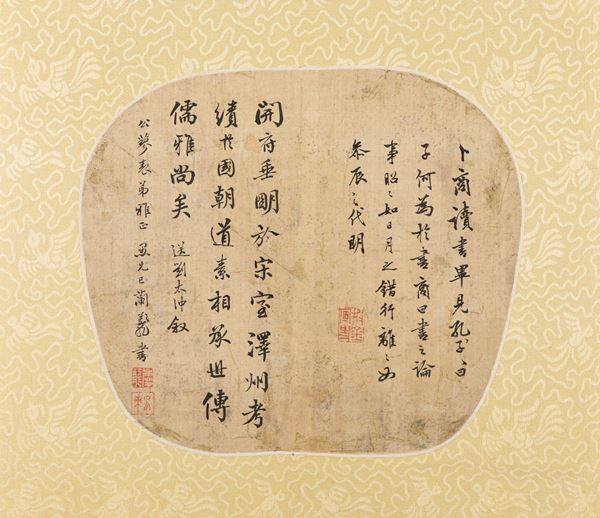 卜商讀書畢見孔子曰
子何為於書商曰書之論
事昭〻如日月之錯行離〻如
參辰之代明
開府垂明於宋室澤州考
績於國朝道素相承世傳
儒雅尚矣 送劉太沖敘
公蓼表弟雅正 愚兄 書